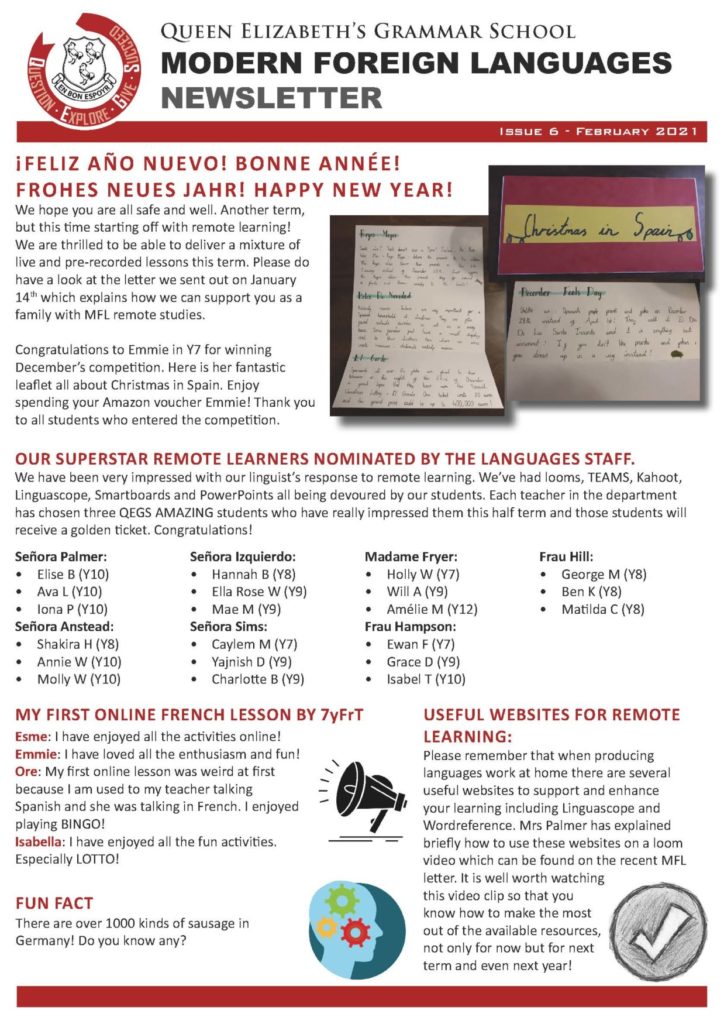 QUEEN ELIZABETH'S GRAMMAR SCHOOL
MODERN FOREIGN LANGUAGES
NEWSLETTER
QUESTION · EXPLORE · GIVE · SUCCEED
EN BON ESPOYR
ISSUE 6 - FEBRUARY 2021
¡FELIZ AÑO NUEVO! BONNE ANNÉE!
FROHES NEUES JAHR! HAPPY NEW YEAR!
We hope you are all safe and well. Another term,
but this time starting off with remote learning!
We are thrilled to be able to deliver a mixture of
live and pre-recorded lessons this term. Please do
have a look at the letter we sent out on January
14th which explains how we can support you as a
family with MFL remote studies.
Congratulations to Emmie in Y7 for winning
December's competition. Here is her fantastic
leaflet all about Christmas in Spain. Enjoy
spending your Amazon voucher Emmie! Thank you
to all students who entered the competition.
Christmas in Spain
December Fools Day
OUR SUPERSTAR REMOTE LEARNERS NOMINATED BY THE LANGUAGES STAFF.
We have been very impressed with our linguist's response to remote learning. We've had looms, TEAMS, Kahoot,
Linguascope, Smartboards and PowerPoints all being devoured by our students. Each teacher in the department
has chosen three QEGS AMAZING students who have really impressed them this half term and those students will
receive a golden ticket. Congratulations!
Señora Palmer:
• Elise B (Y10)
• Ava L (Y10)
• Iona P (Y10)
Señora Anstead:
• Shakira H (Y8)
• Annie W (Y10)
• Molly W (Y10)
Señora Izquierdo:
• Hannah B (Y8)
• Ella Rose W (Y9)
• Mae M (Y9)
Señora Sims:
• Caylem M (Y7)
• Yajnish D (Y9)
• Charlotte B (Y9)
Madame Fryer:
• Holly W (Y7)
• Will A (Y9)
• Amélie M (Y12)
Frau Hampson:
• Ewan F (Y7)
• Grace D (Y9)
• Isabel T (Y10)
Frau Hill:
• George M (Y8)
• Ben K (Y8)
• Matilda C (Y8)
MY FIRST ONLINE FRENCH LESSON BY 7yFrT
Esme: I have enjoyed all the activities online!
Emmie: I have loved all the enthusiasm and fun!
Ore: My first online lesson was weird at first
because I am used to my teacher talking
Spanish and she was talking in French. I enjoyed
playing BINGO!
Isabella: I have enjoyed all the fun activities.
Especially LOTTO!
FUN FACT
There are over 1000 kinds of sausage in
Germany! Do you know any?
USEFUL WEBSITES FOR REMOTE
LEARNING:
Please remember that when producing
languages work at home there are several
useful websites to support and enhance
your learning including Linguascope and
Wordreference. Mrs Palmer has explained
briefly how to use these websites on a loom
video which can be found on the recent MFL
letter. It is well worth watching
this video clip so that you
know how to make the most
out of the available resources,
not only for now but for next
term and even next year!